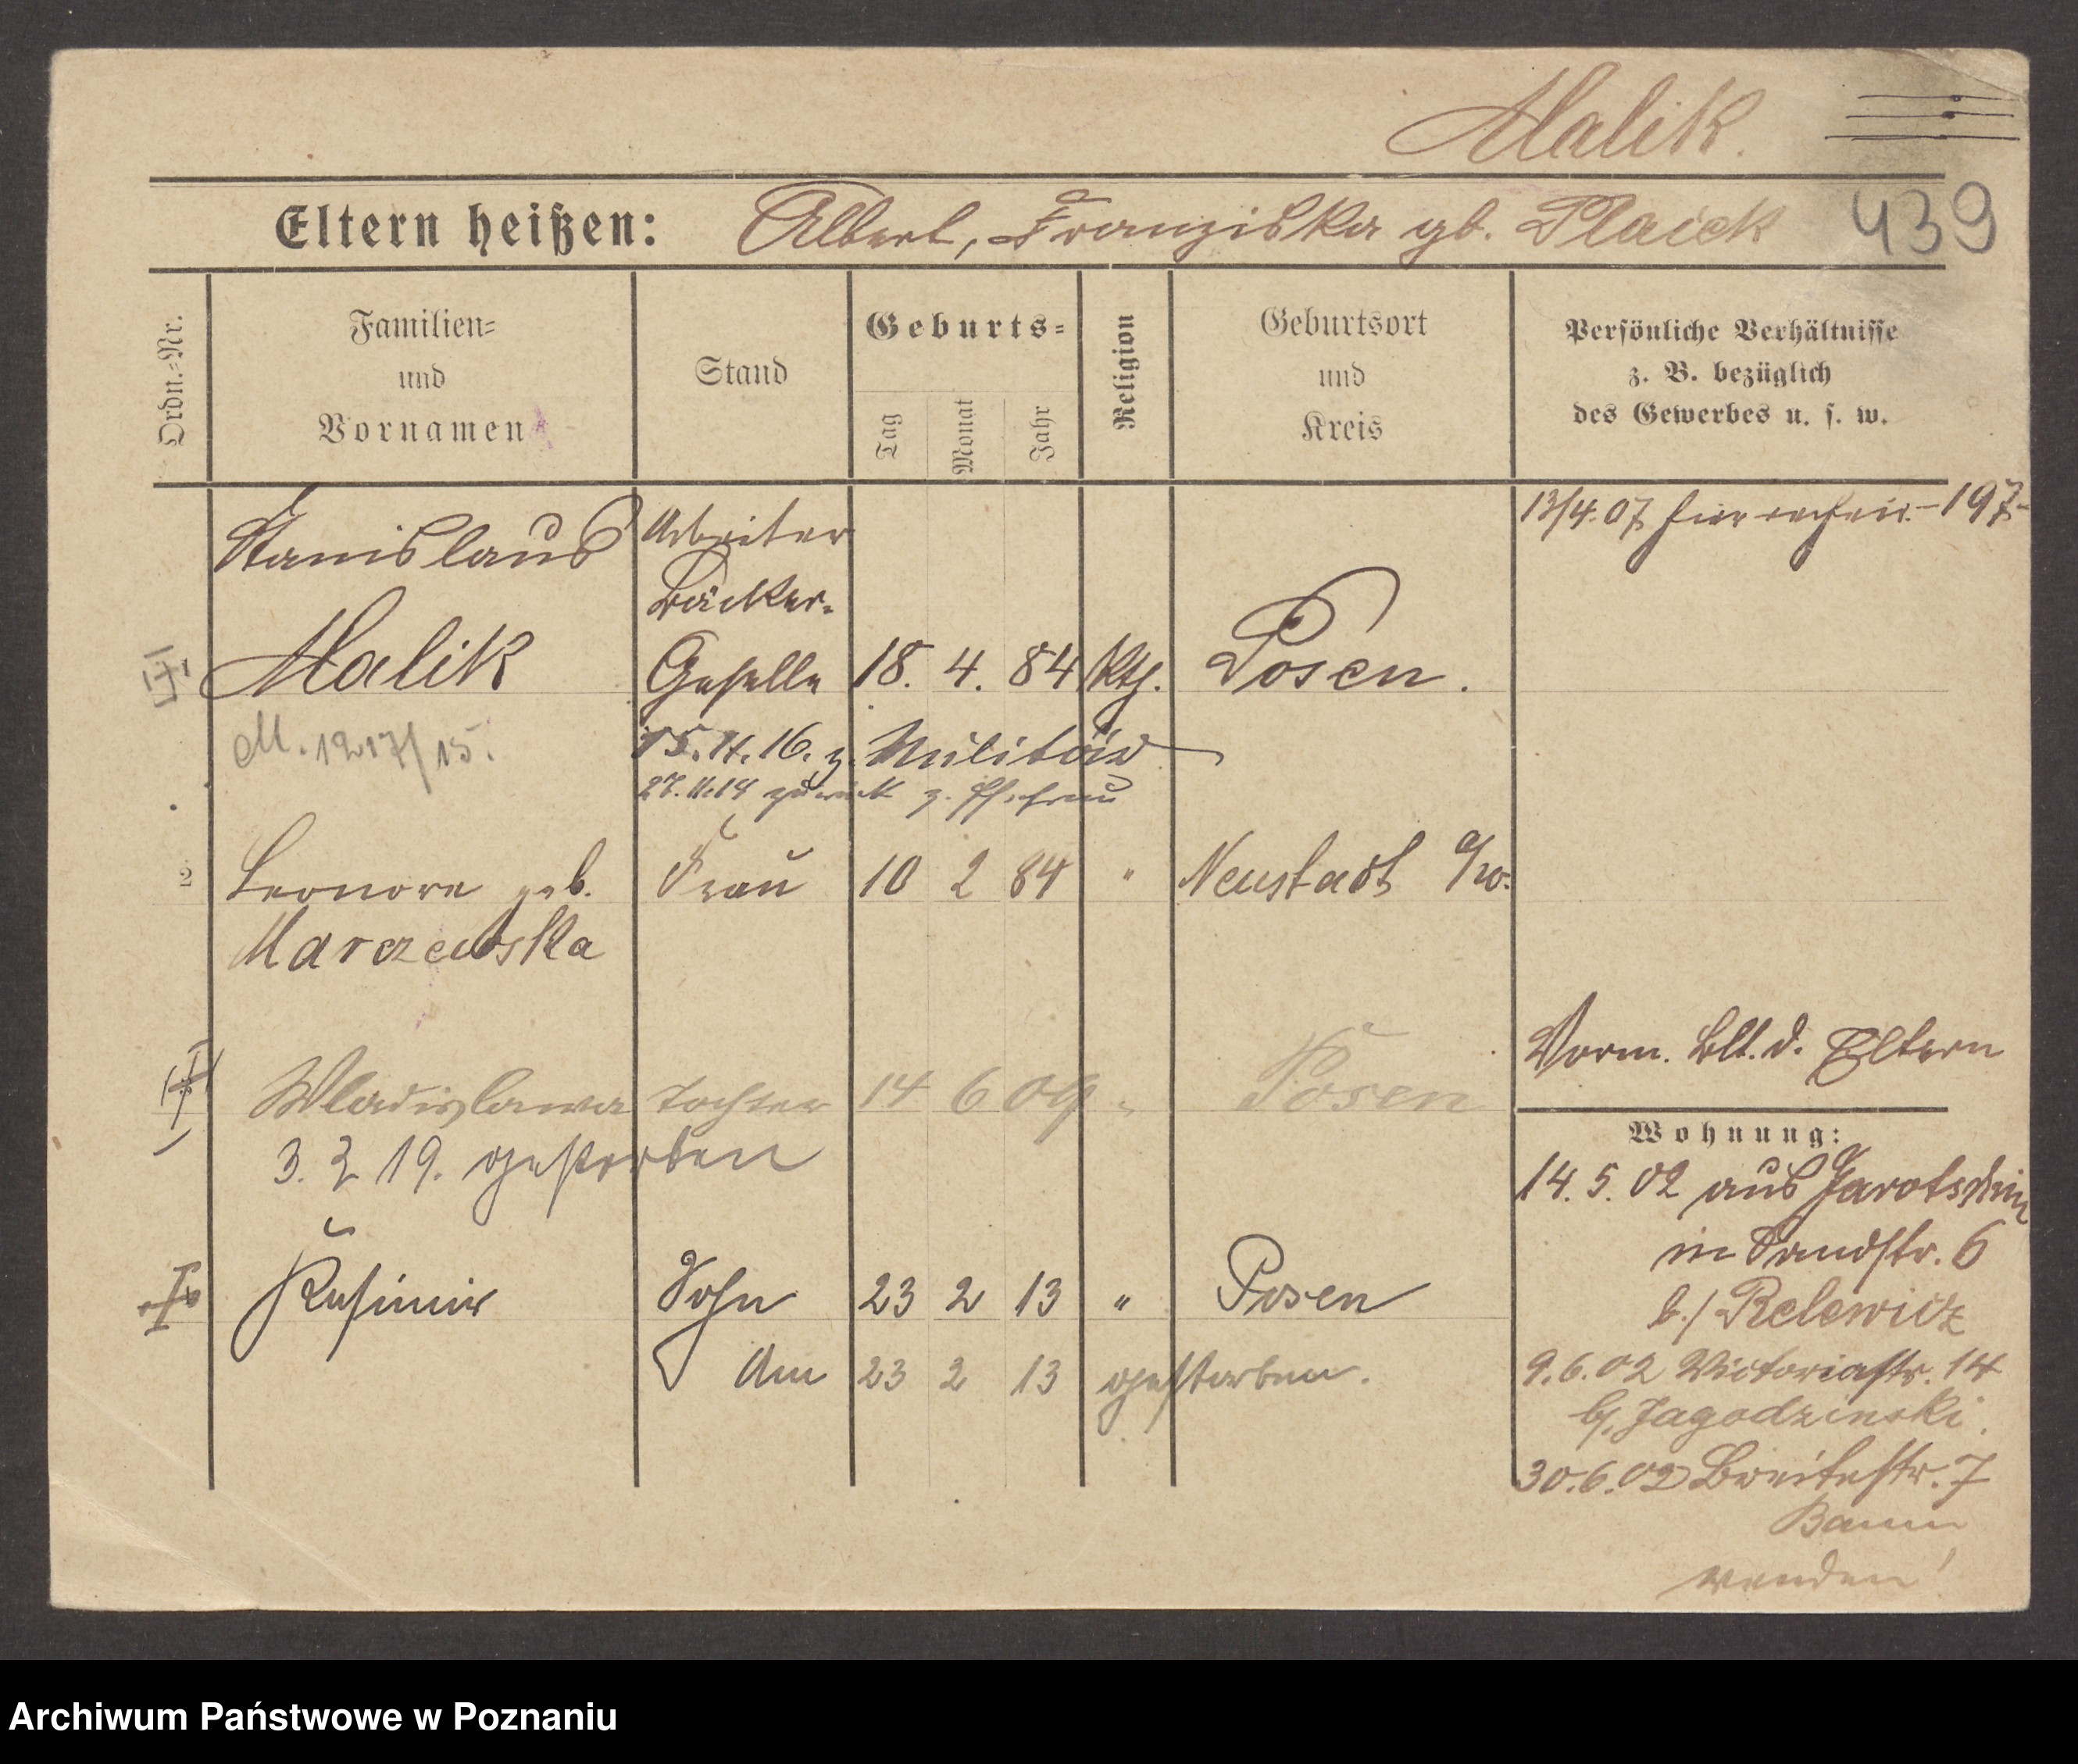 Malik.
439
Eltern heißen: Albert, Franziska gb. Plaick
Ordn.-Nr.
Familien-
und
Vornamen
Stand
Geburts-
Tag
Monat
Jahr
Religion
Geburtsort
und
Kreis
Persönliche Verhältnisse
z. B. bezüglich
des Gewerbes u. s. w.
13/4.07 hier verheir. - 197-
Stanislaus Arbeiter
Bäcker-
Malik Geselle 18. 4. 84 kth. Posen.
M. 1217/15.
15.11.16. z. Militär
27.11.18 zurück z. Ehefrau
2 Leonore geb. Frau 10 2 84 " Neustadt a/W.
Marczewska
Wladislawa Tochter 14 6 09 " Posen
3. 2 19. gestorben
Kasimir Sohn 23 2 13 " Posen
Am 23 2 13 gestorben.
Vorm. blt. d. Eltern
Wohnung:
14. 5. 02 aus Jarotschin
in Sandstr. 6
b./ Relewicz
9.6.02 Victoriastr. 14
b/ Jagodzinski.
30.6.02 Breitestr. 7
Baum
wenden!
Archiwum Państwowe w Poznaniu